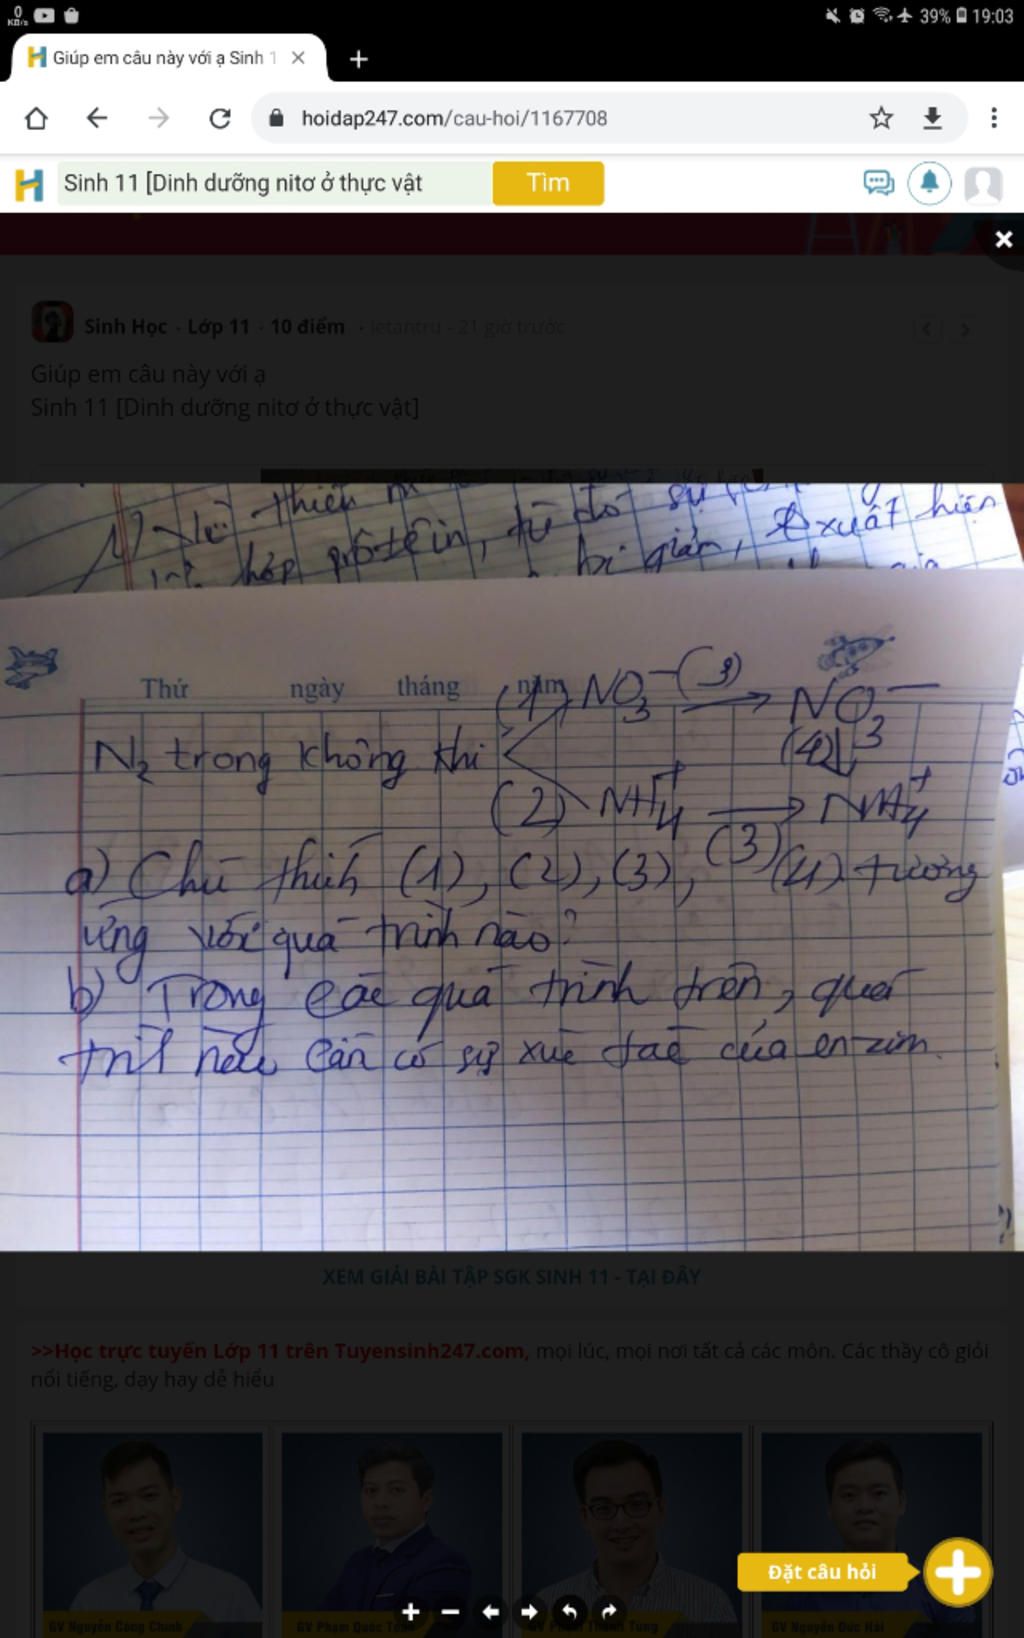 0
KB/s
39% 19:03
Giúp em câu này với ạ Sinh 1
hoidap247.com/cau-hoi/1167708
Sinh 11 [Dinh dưỡng nitơ ở thực vật
Tìm
Sinh Học · Lớp 11 · 10 điểm · letantru - 21 giờ trước
Giúp em câu này với ạ
Sinh 11 [Dinh dưỡng nitơ ở thực vật]
thiếu
hợp prôtêin, từ đó sự
bị giảm, xuất hiện
Thứ ngày tháng năm
(1) NO₃⁻ (3) → NO₃⁻
N₂ trong không khí
(4)↓
(2) NH₄⁺ → NH₄⁺
(3)
a) Chú thích (1), (2), (3), (4) tương
ứng với quá trình nào?
b) Trong các quá trình trên, quá
trình nào cần có sự xúc tác của enzim.
XEM GIẢI BÀI TẬP SGK SINH 11 - TẠI ĐÂY
>>Học trực tuyến Lớp 11 trên Tuyensinh247.com, mọi lúc, mọi nơi tất cả các môn. Các thầy cô giỏi
nổi tiếng, dạy hay dễ hiểu
Đặt câu hỏi
GV Nguyễn Công Chính
GV Phạm Quốc Toản
GV Phạm Thanh Tùng
GV Nguyễn Đức Hải